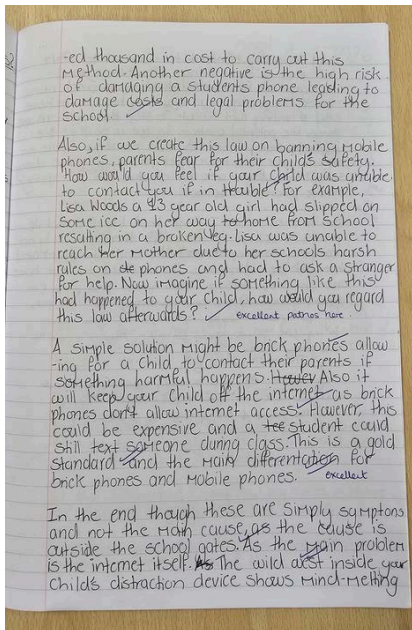 -ed thousand in cost to carry out this
method. Another negative is the high risk
of damaging a students phone leading to
damage costs and legal problems for the
school.
Also, if we create this law on banning mobile
phones, parents fear for their child's safety.
How would you feel if your child was unable
to contact you if in trouble? For example,
Lisa Woods a 13 year old girl had slipped on
some ice on her way to home from school
resulting in a broken leg. Lisa was unable to
reach her mother due to her schools harsh
rules on phones and had to ask a stranger
for help. Now imagine if something like this
had happened to your child, how would you regard
this law afterwards?
excellent pathos here
A simple solution might be brick phones allow
-ing for a child to contact their parents if
something harmful happens. Also it
will keep your child off the internet as brick
phones don't allow internet access. However, this
could be expensive and a student could
still text someone during class. This is a gold
standard and the main differentation for
brick phones and mobile phones.
excellent
In the end though these are simply symptons
and not the main cause, as the cause is
outside the school gates. As the main problem
is the internet itself. The wild west inside your
child's distraction device shows mind-melting